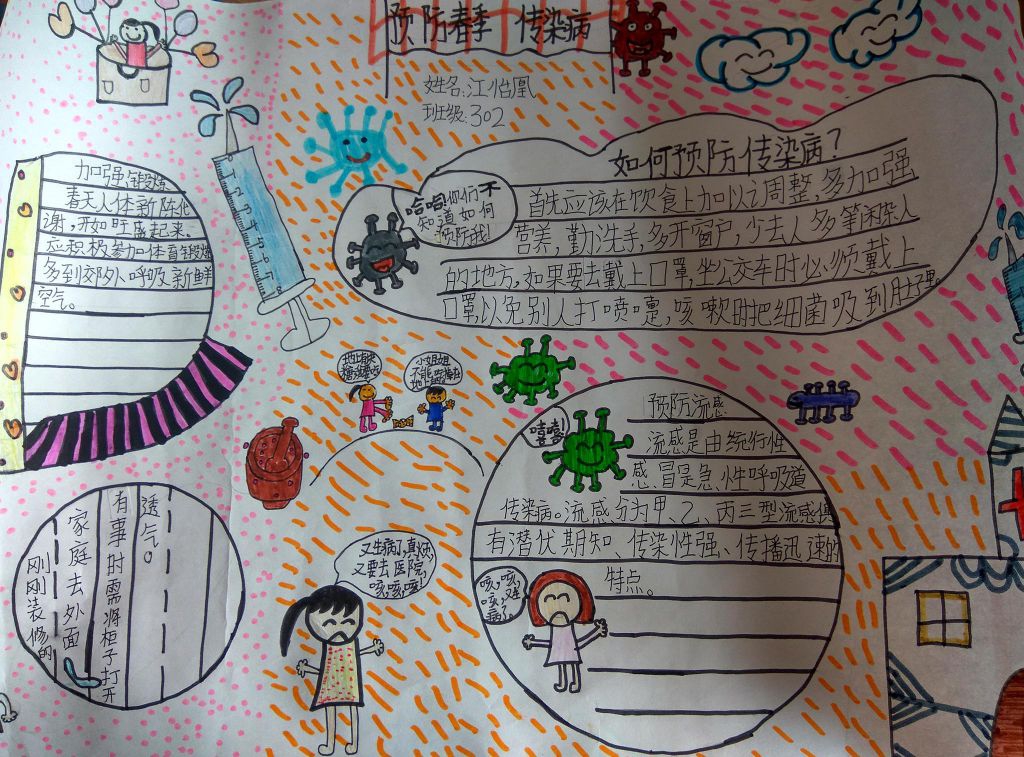 预防春季 传染病
姓名:江怡凰
班级:302
加强锻炼
春天人体新陈代
谢,开始旺盛起来、
应积极参加体育锻炼
多到郊外呼吸新鲜
空气。
如何预防传染病?
首先应该在饮食上加以调整,多加强
营养,勤洗手,多开窗户,少去人多等闲杂人
的地方。如果要去戴上口罩,坐公交车时必须戴上
口罩以免别人打喷嚏,咳嗽时把细菌吸到肚子里
哈哈你们不
知道如何
预防我!
小姐姐
不能
预防流感
流感是由统行性
感冒是急性呼吸道
传染病。流感分为甲、乙、丙三型流感俱
有潜伏期知、传染性强、传播迅速的
特点。
嘻嘻!
咳,咳,
咳,
病了。
又生病了,真烦,
又要去医院,
咳,咳,咳!
透气。
有事时需将柜子打开
家庭去外面
刚刚装修的